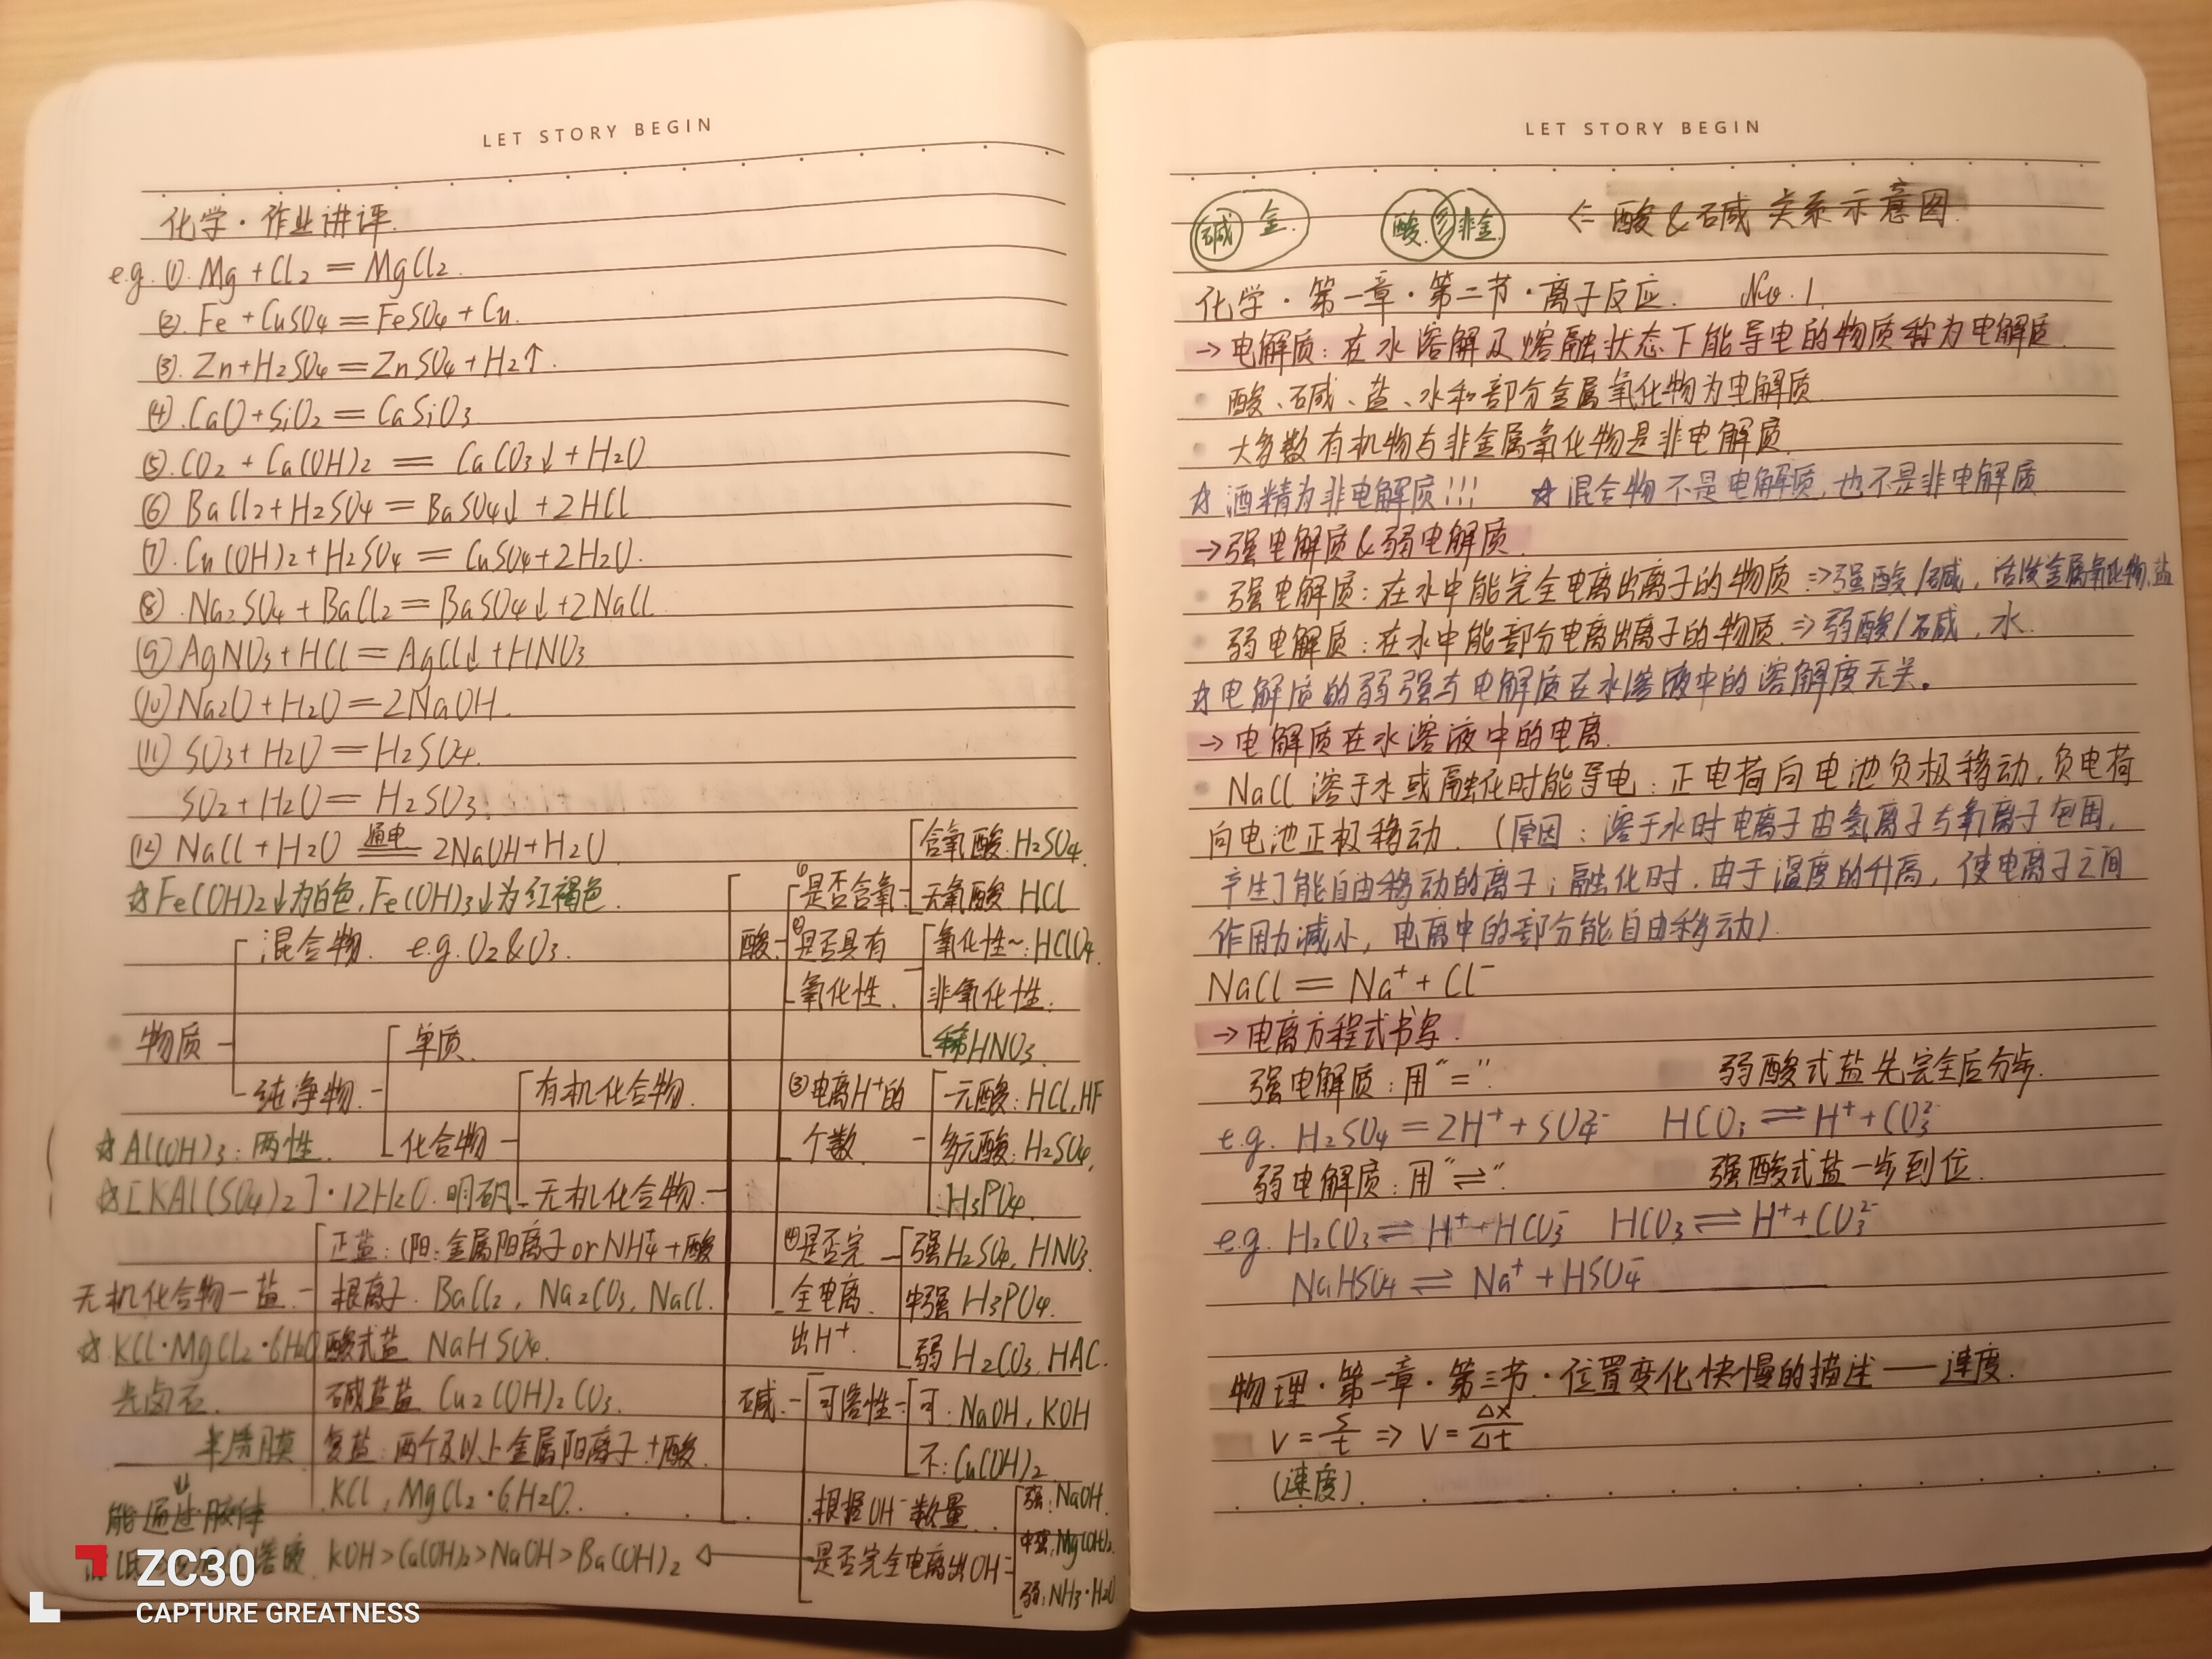 LET STORY BEGIN
化学·作业讲评.
e.g. ①. Mg + Cl2 = MgCl2.
②. Fe + CuSO4 = FeSO4 + Cu.
③. Zn + H2SO4 = ZnSO4 + H2↑.
④. CaO + SiO2 = CaSiO3.
⑤. CO2 + Ca(OH)2 = CaCO3↓ + H2O
⑥ BaCl2 + H2SO4 = BaSO4↓ + 2HCl
⑦. Cu(OH)2 + H2SO4 = CuSO4 + 2H2O.
⑧. Na2SO4 + BaCl2 = BaSO4↓ + 2NaCl
⑨ AgNO3 + HCl = AgCl↓ + HNO3
⑩ Na2O + H2O = 2NaOH.
⑪ SO3 + H2O = H2SO4.
SO2 + H2O = H2SO3.
⑫ NaCl + H2O 通电 2NaOH + H2O.
☆Fe(OH)2↓为白色, Fe(OH)3↓为红褐色.
混合物. e.g. O2&O3.
物质
单质.
纯净物.
有机化合物.
☆Al(OH)3: 两性.
化合物
☆[KAl(SO4)2]·12H2O. 明矾
无机化合物
酸
①是否含氧
含氧酸 H2SO4.
无氧酸 HCl
②是否具有
氧化性.
氧化性~: HClO4.
非氧化性:
稀HNO3.
③电离H+的
个数.
一元酸: HCl, HF
多元酸: H2SO4,
H3PO4.
④是否完
全电离
出H+.
强 H2SO4, HNO3.
中强 H3PO4.
弱 H2CO3, HAC.
无机化合物—盐.
正盐: (阳: 金属阳离子or NH4+ + 酸
根离子. BaCl2, Na2CO3, NaCl.
☆KCl·MgCl2·6H2O
酸式盐 NaHSO4.
光卤石.
碱盐盐 Cu2(OH)2CO3.
半透膜
复盐: 两个及以上金属阳离子+酸.
KCl, MgCl2·6H2O.
能通过胶体
溶液
碱.
可溶性
可: NaOH, KOH
不: Cu(OH)2
根据OH-数量.
是否完全电离出OH-
强: NaOH.
中强: Mg(OH)2.
弱: NH3·H2O
KOH > Ca(OH)2 > NaOH > Ba(OH)2
ZC30
CAPTURE GREATNESS
LET STORY BEGIN
碱 金. 酸 非金 <= 酸&碱关系示意图.
化学·第一章·第二节·离子反应. No.1.
→电解质: 在水溶解及熔融状态下能导电的物质称为电解质.
酸、碱、盐、水和部分金属氧化物为电解质.
大多数有机物与非金属氧化物是非电解质.
☆酒精为非电解质!!! ☆混合物不是电解质, 也不是非电解质
→强电解质&弱电解质.
强电解质: 在水中能完全电离出离子的物质 => 强酸/碱, 活泼金属氧化物, 盐
弱电解质: 在水中能部分电离出离子的物质. => 弱酸/碱, 水.
☆电解质的弱强与电解质在水溶液中的溶解度无关。
→电解质在水溶液中的电离.
NaCl 溶于水或融化时能导电: 正电荷向电池负极移动, 负电荷
向电池正极移动. (原因: 溶于水时电离子由氢离子与氧离子包围,
产生了能自由移动的离子; 融化时, 由于温度的升高, 使电离子之间
作用力减小, 电离中的部分能自由移动)
NaCl = Na+ + Cl-
→电离方程式书写.
强电解质: 用"=". 弱酸式盐先完全后分步.
e.g. H2SO4 = 2H+ + SO42- HCO3 ⇌ H+ + CO32-
弱电解质: 用"⇌". 强酸式盐一步到位.
e.g. H2CO3 ⇌ H+ + HCO3- HCO3 ⇌ H+ + CO32-
NaHSO4 ⇌ Na+ + HSO4-
物理·第一章·第三节·位置变化快慢的描述——速度.
V = s/t => V = Δx/Δt
(速度)